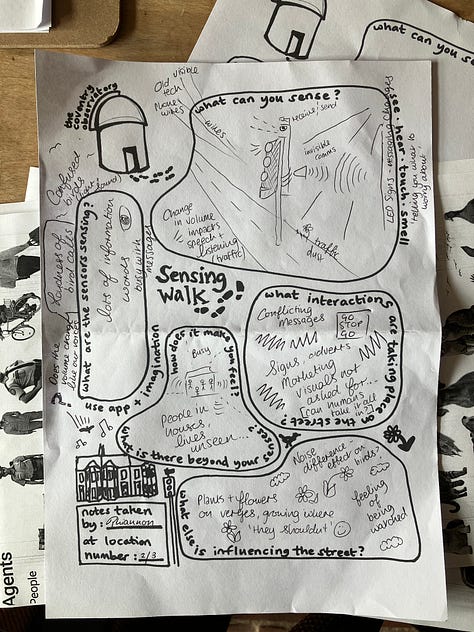 the
coventry
observatory
Old visible
tech
Phone
wires
what can you sense?
see · hear · touch · smell
wires
receive/send
invisible
comms
Change
in volume
impacts
speech +
listening
(traffic)
traffic
LED Signs - messaging changes
'telling you what to
worry about'
Confused
birds
Loudness of
bird calls
Does the
volume change
like our voices
?
what are the sensors sensing?
lots of information
words
busy with
messages
Sensing
walk
what interactions are taking place on the street?
Conflicting
Messages
GO
STOP
GO
Signs, adverts
Marketing
visuals not
asked for...
[can humans
take it all
in?]
use app + imagination
how does it make you feel?
Busy
People in
houses,
lives
unseen...
what is there beyond your senses?
Noise
difference -
effect on
birds?
Plants + flowers
on verges, growing where
'they shouldn't'
feeling
of
being
watched
what else is influencing the street?
notes taken
by: Rhiannon
at location
number: 2/3
what can you sen
Agents
People